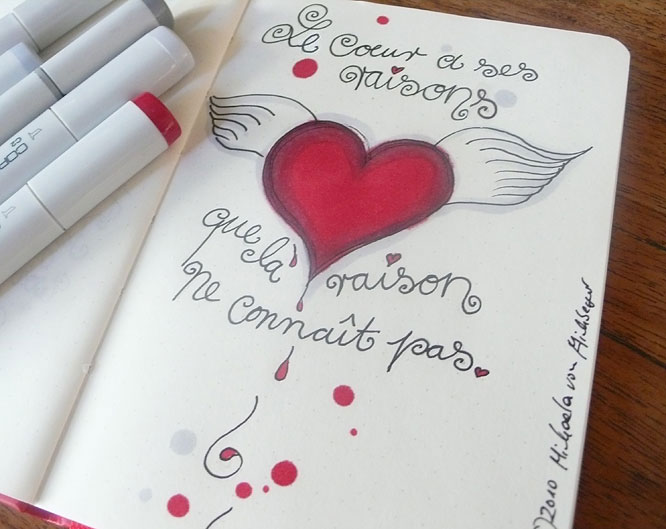 Le Cœur a ses
raisons
que là raison
ne connaît pas.
©2010 Michaela von
COPIC